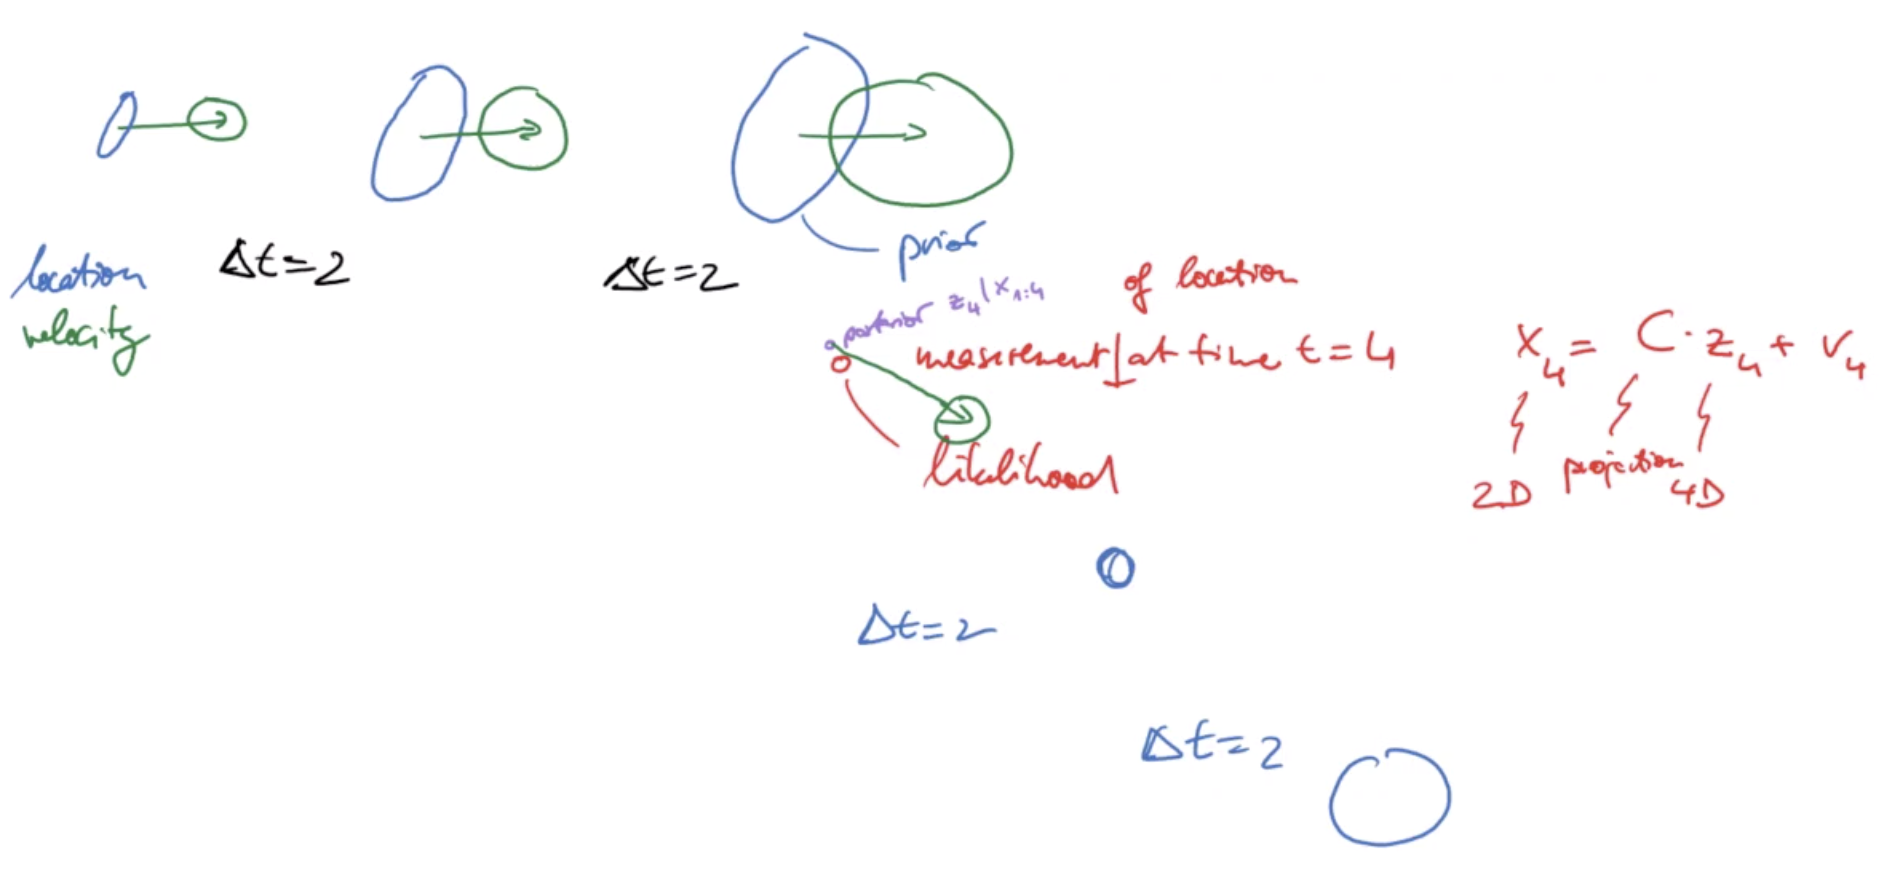 location
velocity
Δt=2
Δt=2
prior
posterior z₄|x₁:₄
of location
measurement at time t=4
likelihood
x₄ = C·z₄ + v₄
2D projection 4D
Δt=2
Δt=2